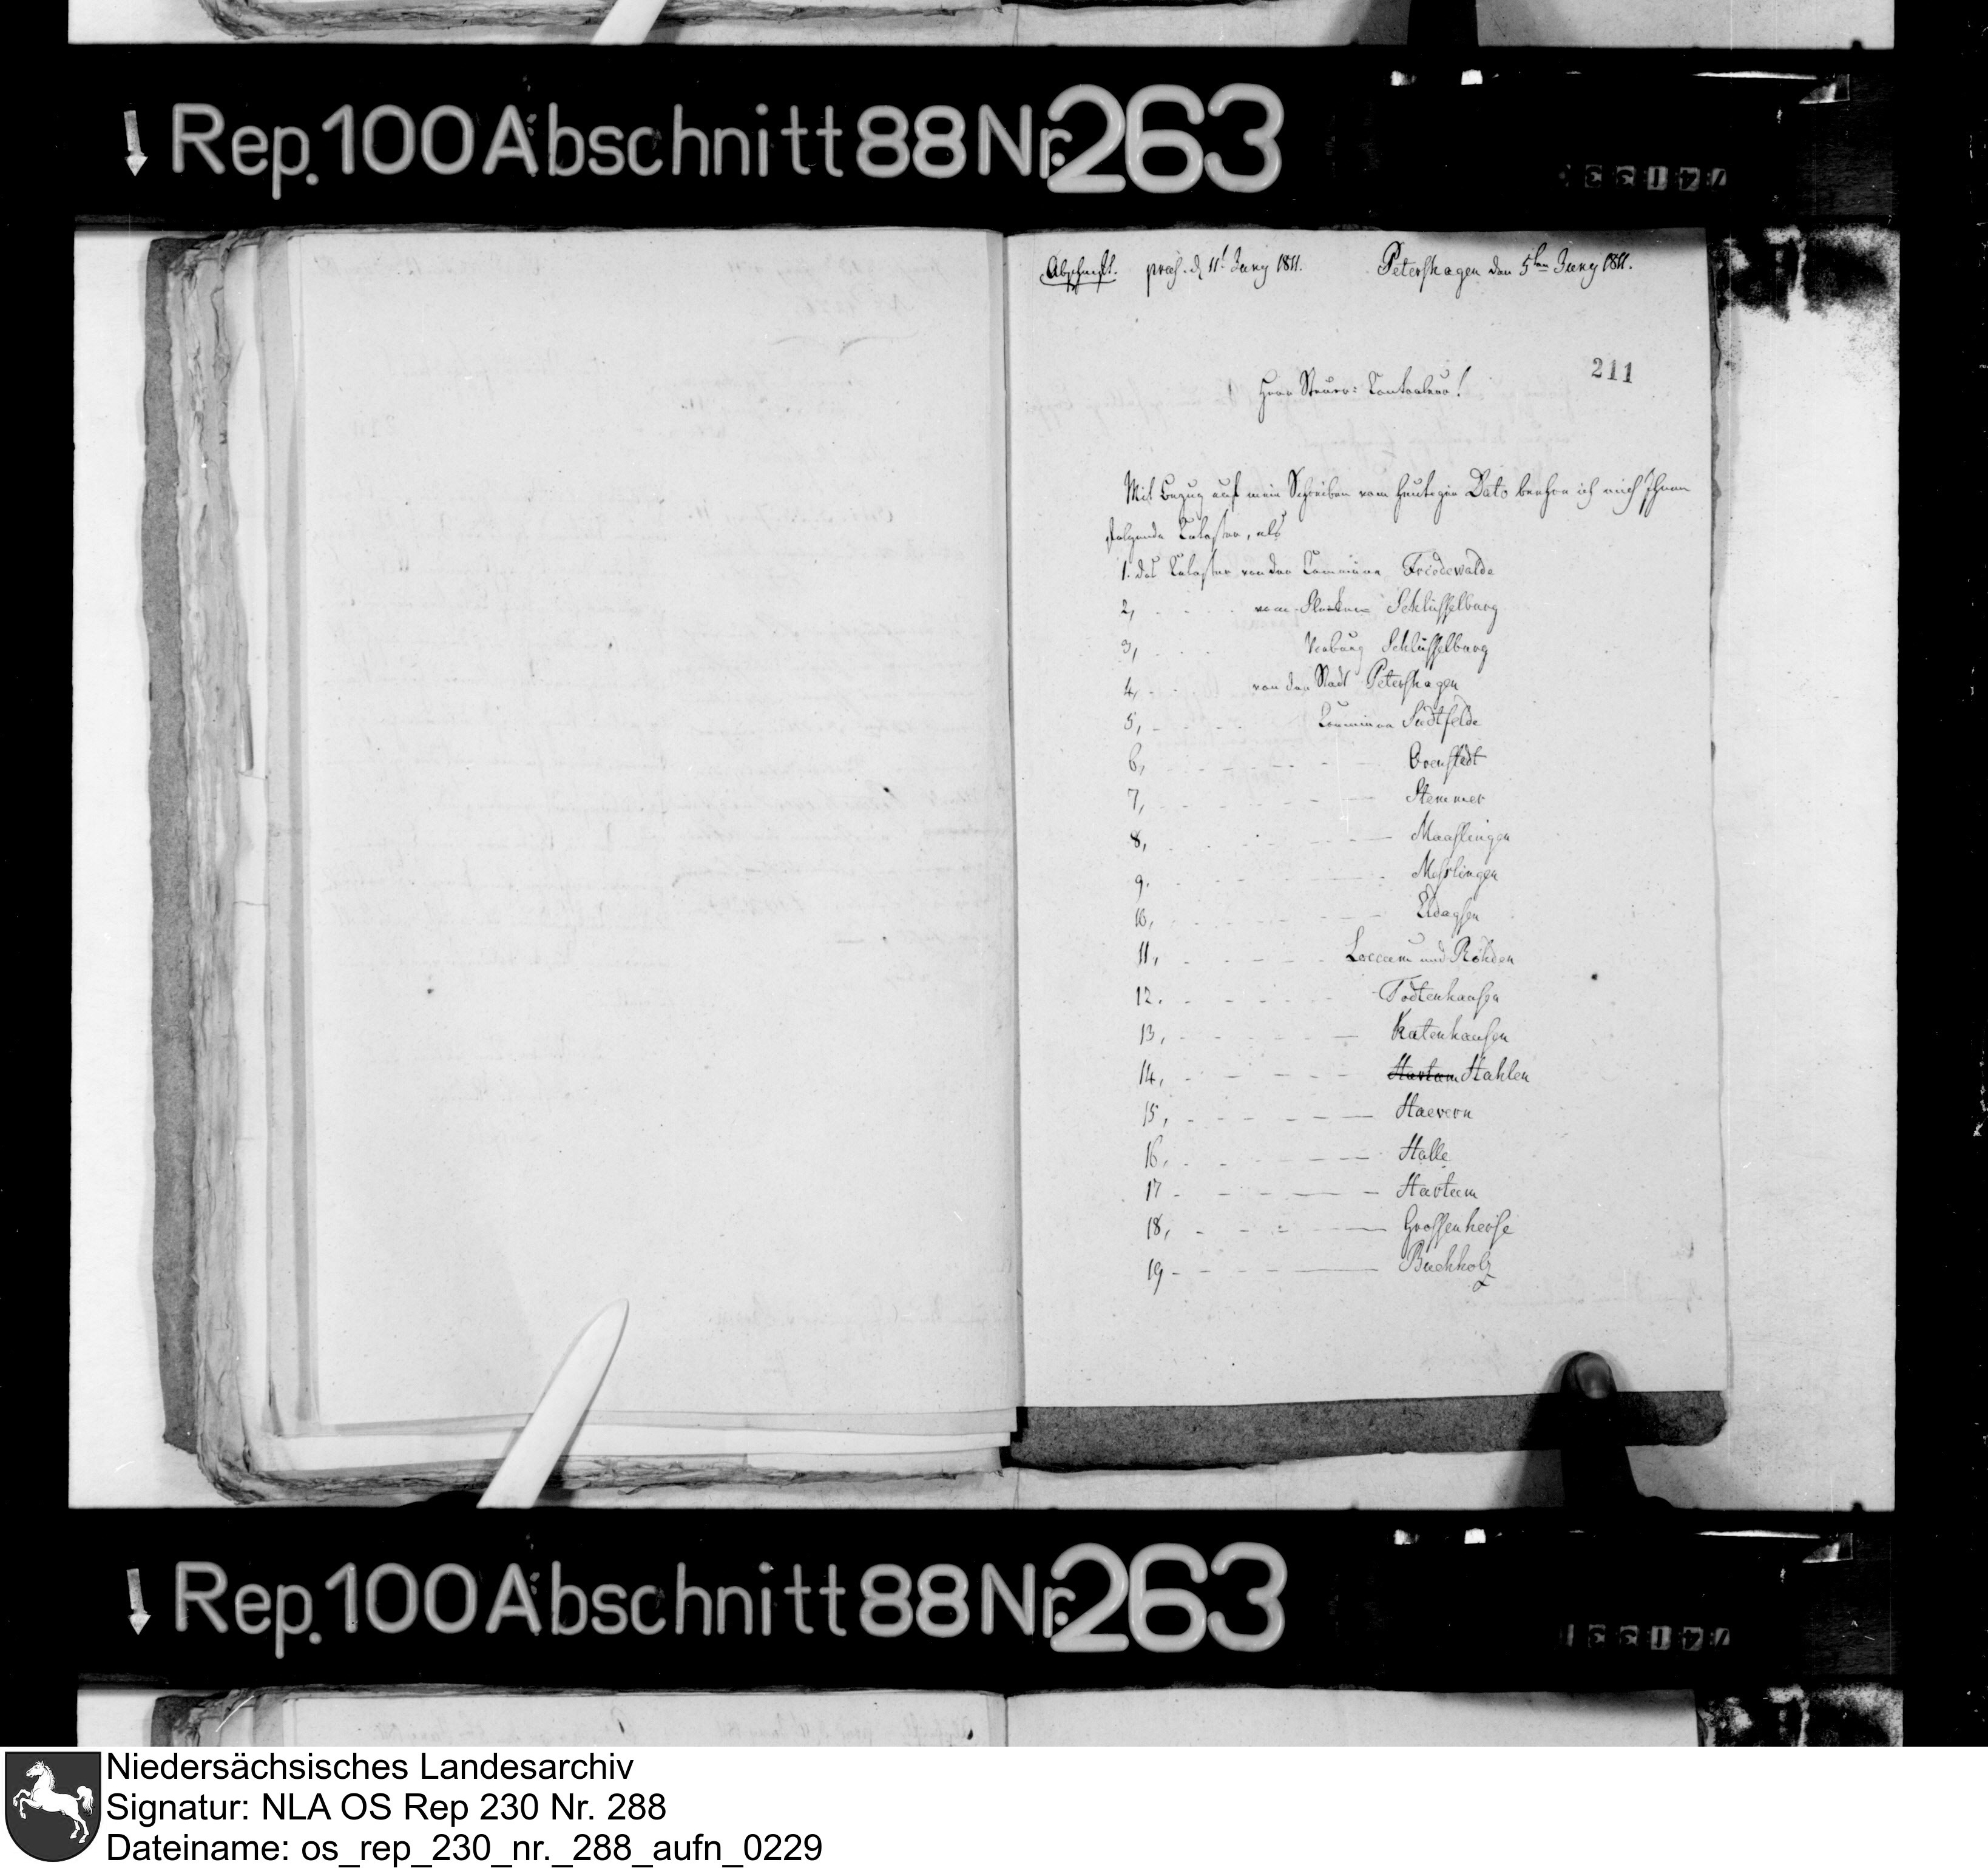 Rep. 100 Abschnitt 88 Nr. 263
Abschrift. praes. d 11t Juny 1811. Petershagen den 5ten Juny 1811.
211
Herr Steuer: Controleur!
Mit Bezug auf mein Schreiben vom heutigen Dato beehre ich mich Ihnen
folgende Cataster, als
1. das Cataster von der Commüne Friedewalde
2, - - - - vom Flecken Schlüsselburg
3, - - - - Vorburg Schlüsselburg
4, - - - von der Stadt Petershagen
5, - - - - - Commüne Südtfelde
6, - - - - - - Ovenstädt
7, - - - - - - Stemmer
8, - - - - - - Maaslingen
9. - - - - - - Messlingen
10, - - - - - - Eldagsen
11, - - - - - Loccum und Röhden
12. - - - - - Todtenhausen
13, - - - - - - Katenhausen
14, - - - - - Hartum Hahlen
15, - - - - - - Haevern
16, - - - - - - Halle
17 - - - - - - Hartum
18, - - - - - Grossenheerse
19 - - - - - - Buchholz
Rep. 100 Abschnitt 88 Nr. 263
Niedersächsisches Landesarchiv
Signatur: NLA OS Rep 230 Nr. 288
Dateiname: os_rep_230_nr._288_aufn_0229